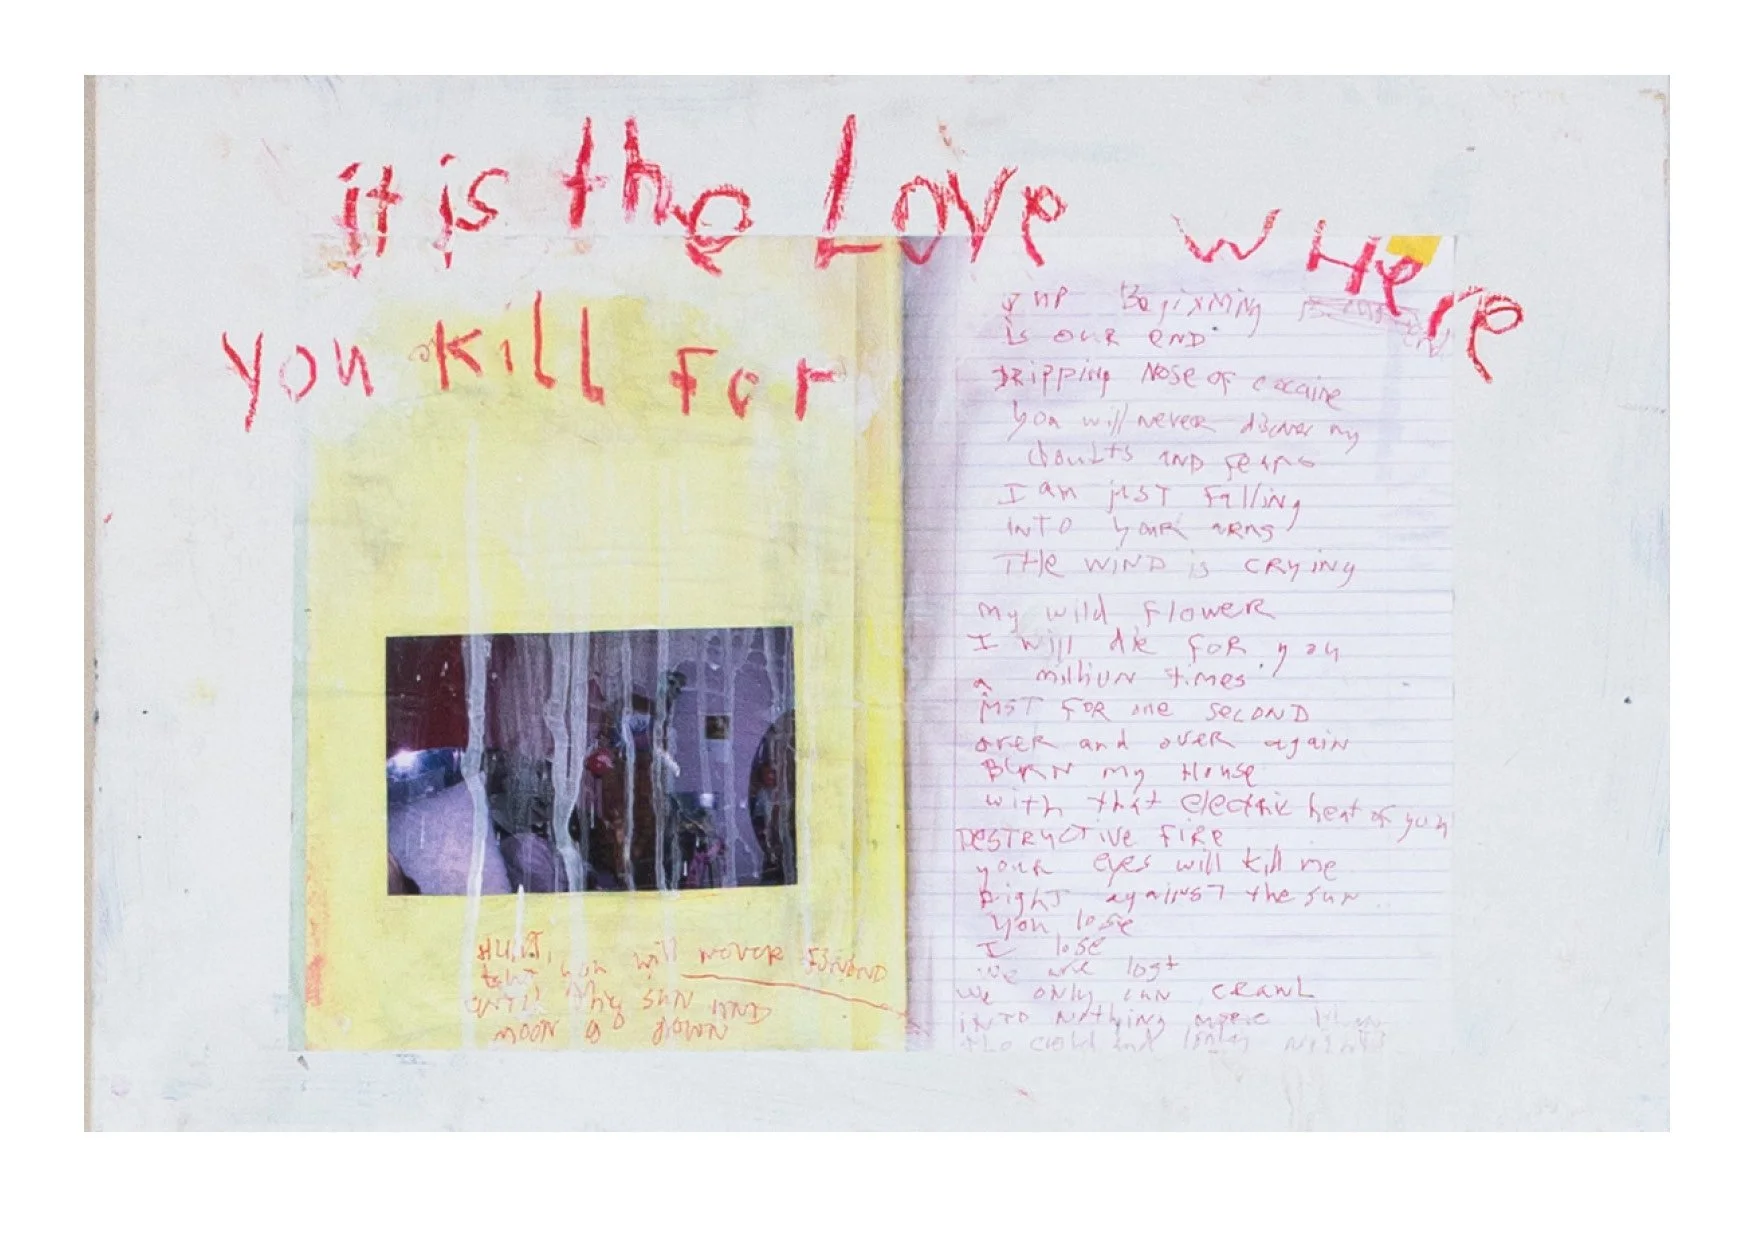 it is the Love WHere
you kill For
Beginning
is our END
Dripping Nose of cocaine
You will never discover my
doubts AND fears
I am just Falling
INTO your arms
THe WIND is CRyiNg
my wild FlowER
I will die FOR you
a million times
just FOR one SECOND
over and over again
BURN my House
with that electric heat of your
DESTRUCTIVE FIRE
your eyes will kill me
Right against the sun
you lose
I lose
we are lost
we ONly can CRAWL
INTO Nothing more than
the cold and lonely
you will never
until the SUN AND
MOON go DOWN